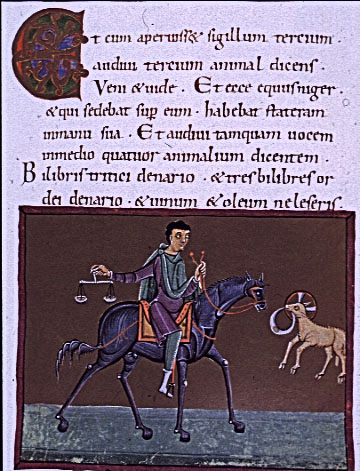 Et cum aperuiss& sigillum tercium.
audiui tercium animal dicens.
Veni & uide. Et ecce equus niger.
& qui sedebat sup eum. habebat stateram
in manu sua. Et audiui tamquam uocem
in medio quatuor animalium dicentem.
Bilibris tritici denario. & tres bilibres or
dei denario. & uinum & oleum ne leseris.